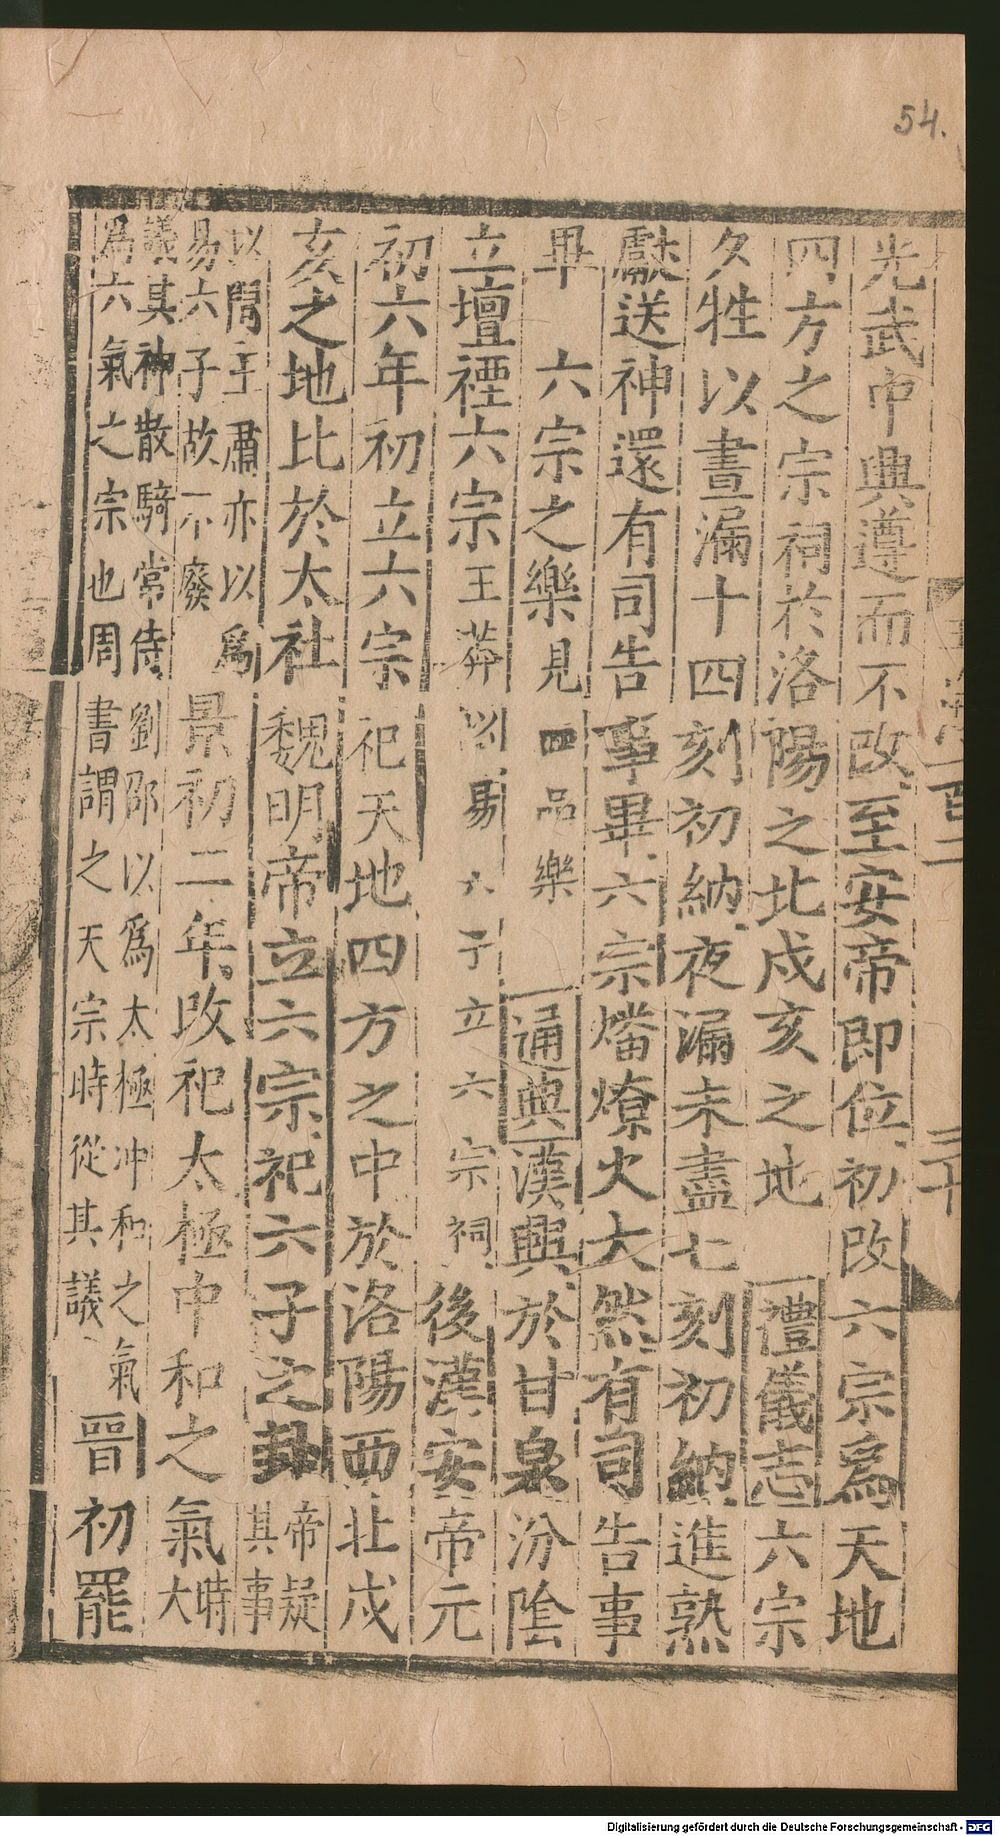 54.
光武中興遵而不改至安帝即位初改六宗爲天地
四方之宗祠於洛陽之北戌亥之地 禮儀志六宗
夕牲以晝漏十四刻初納夜漏未盡七刻初納進熟
獻送神還有司告事畢六宗燔燎火大然有司告事
畢 六宗之樂見四品樂 通典漢興於甘泉汾陰
立壇禋六宗王莽以易六子立六宗祠後漢安帝元
初六年初立六宗祀天地四方之中於洛陽西北戌
亥之地比於太社魏明帝立六宗祀六子之卦帝疑其事
以問王肅亦以爲易六子故不廢景初二年改祀太極中和之氣時大
議其神散騎常侍劉邵以爲太極冲和之氣爲六氣之宗也周書謂之天宗時從其議晉初罷
二十
Digitalisierung gefördert durch die Deutsche Forschungsgemeinschaft - DFG